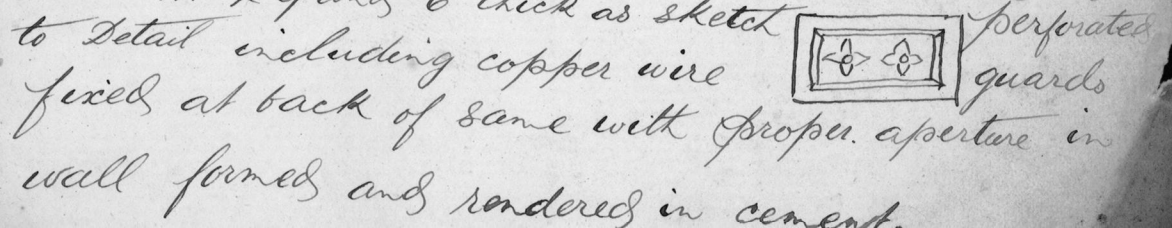 thick as sketch perforated
to Detail including copper wire guards
fixed at back of same with proper. aperture in
wall formed and rendered in cement.